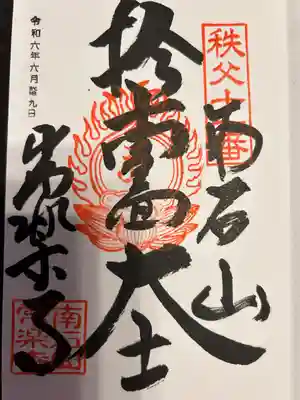 秩父十一番
南石山
拾壹面大士
常楽寺
南石山
常楽寺
令和六年六月九日